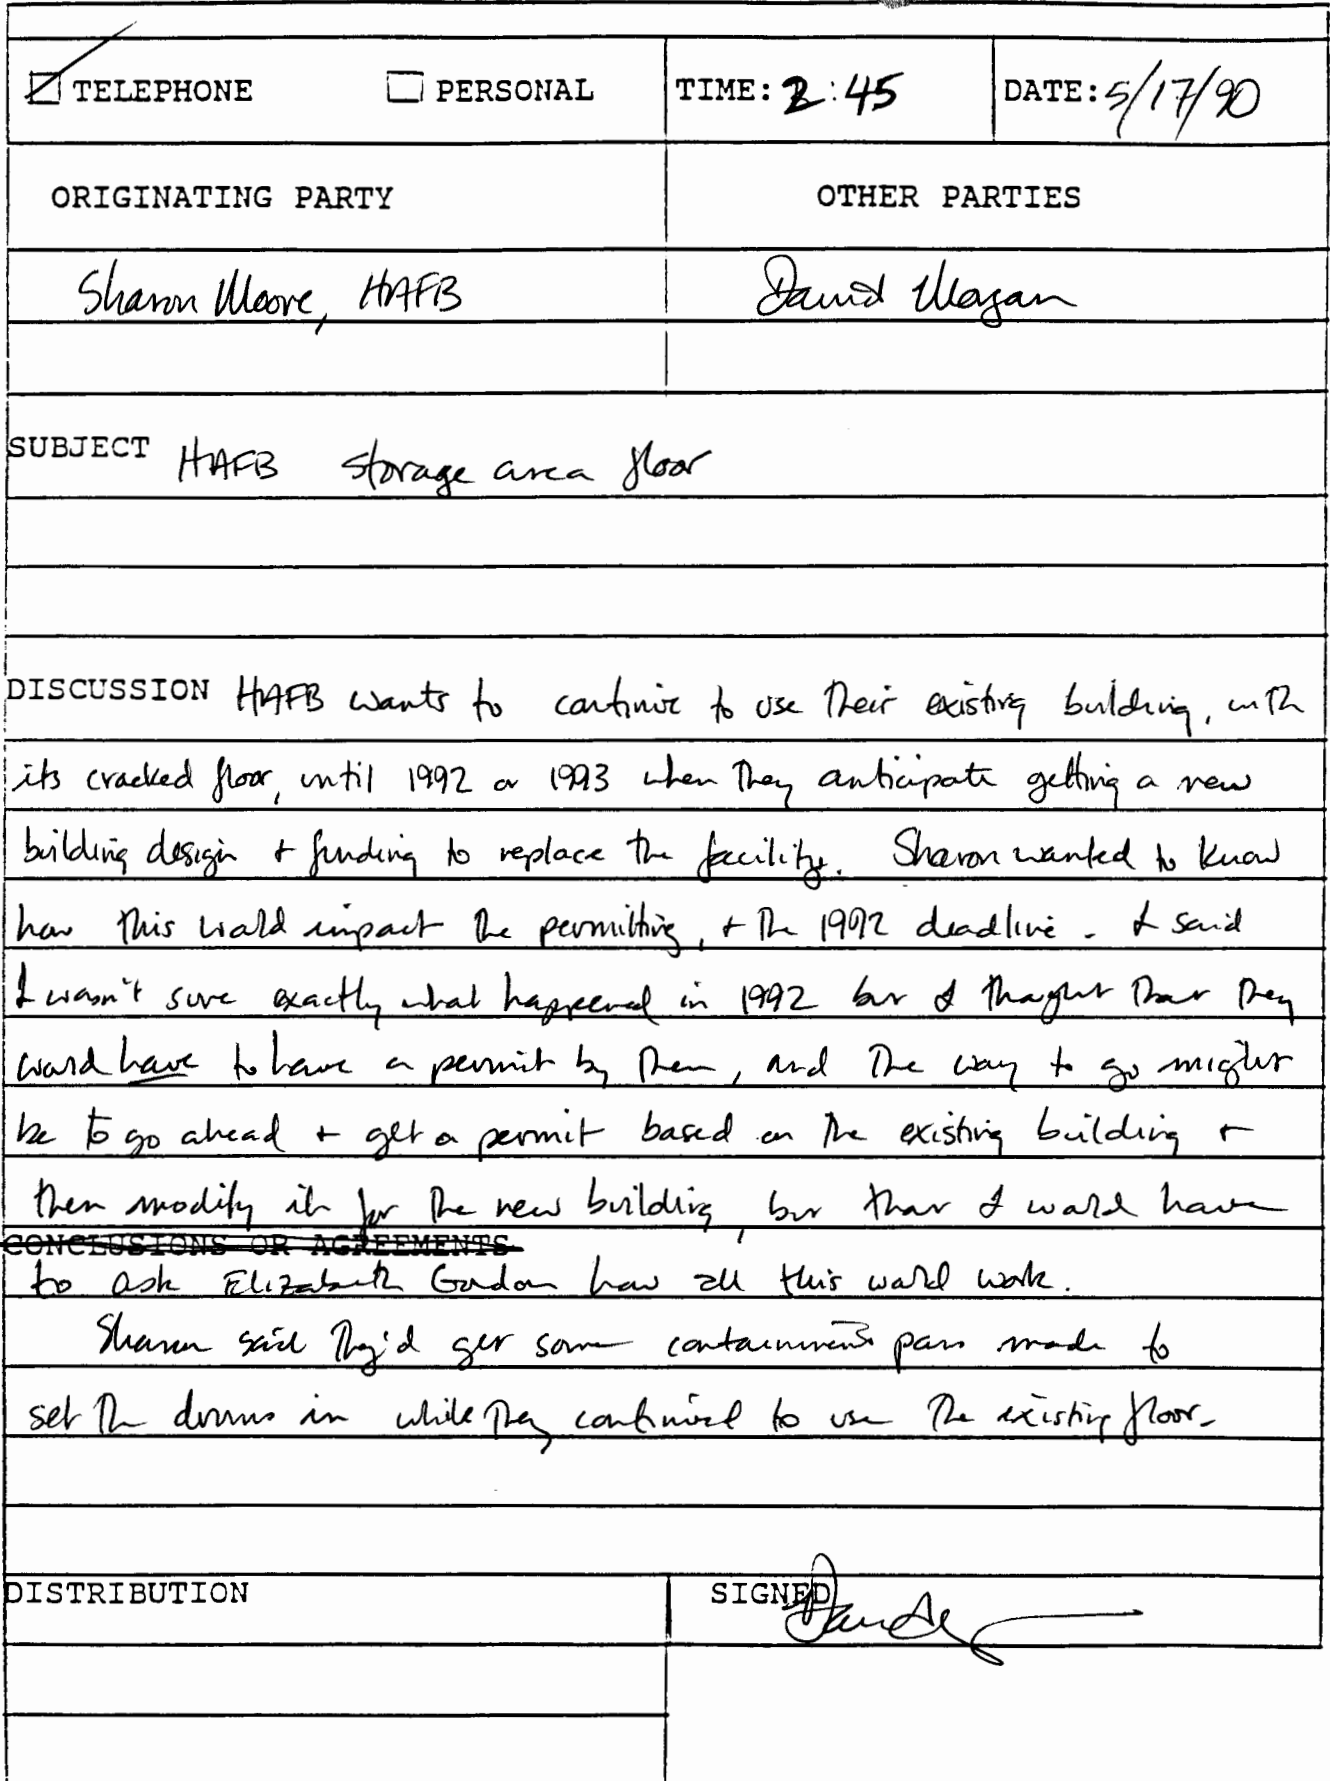 TELEPHONE PERSONAL TIME: 2:45 DATE: 5/17/90
ORIGINATING PARTY OTHER PARTIES
Sharon Moore, HAFB David Morgan
SUBJECT HAFB storage area floor
DISCUSSION HAFB wants to continue to use their existing building, with
its cracked floor, until 1992 or 1993 when they anticipate getting a new
building design + funding to replace the facility. Sharon wanted to know
how this would impact the permitting, + the 1992 deadline. I said
I wasn't sure exactly what happened in 1992 but I thought that they
would have to have a permit by then, and the way to go might
be to go ahead + get a permit based on the existing building +
then modify it for the new building, but that I would have
CONCLUSIONS OR AGREEMENTS
to ask Elizabeth Gordon how all this would work.
Sharon said they'd get some containment pans made to
set the drums in while they continued to use the existing floor.
DISTRIBUTION SIGNED